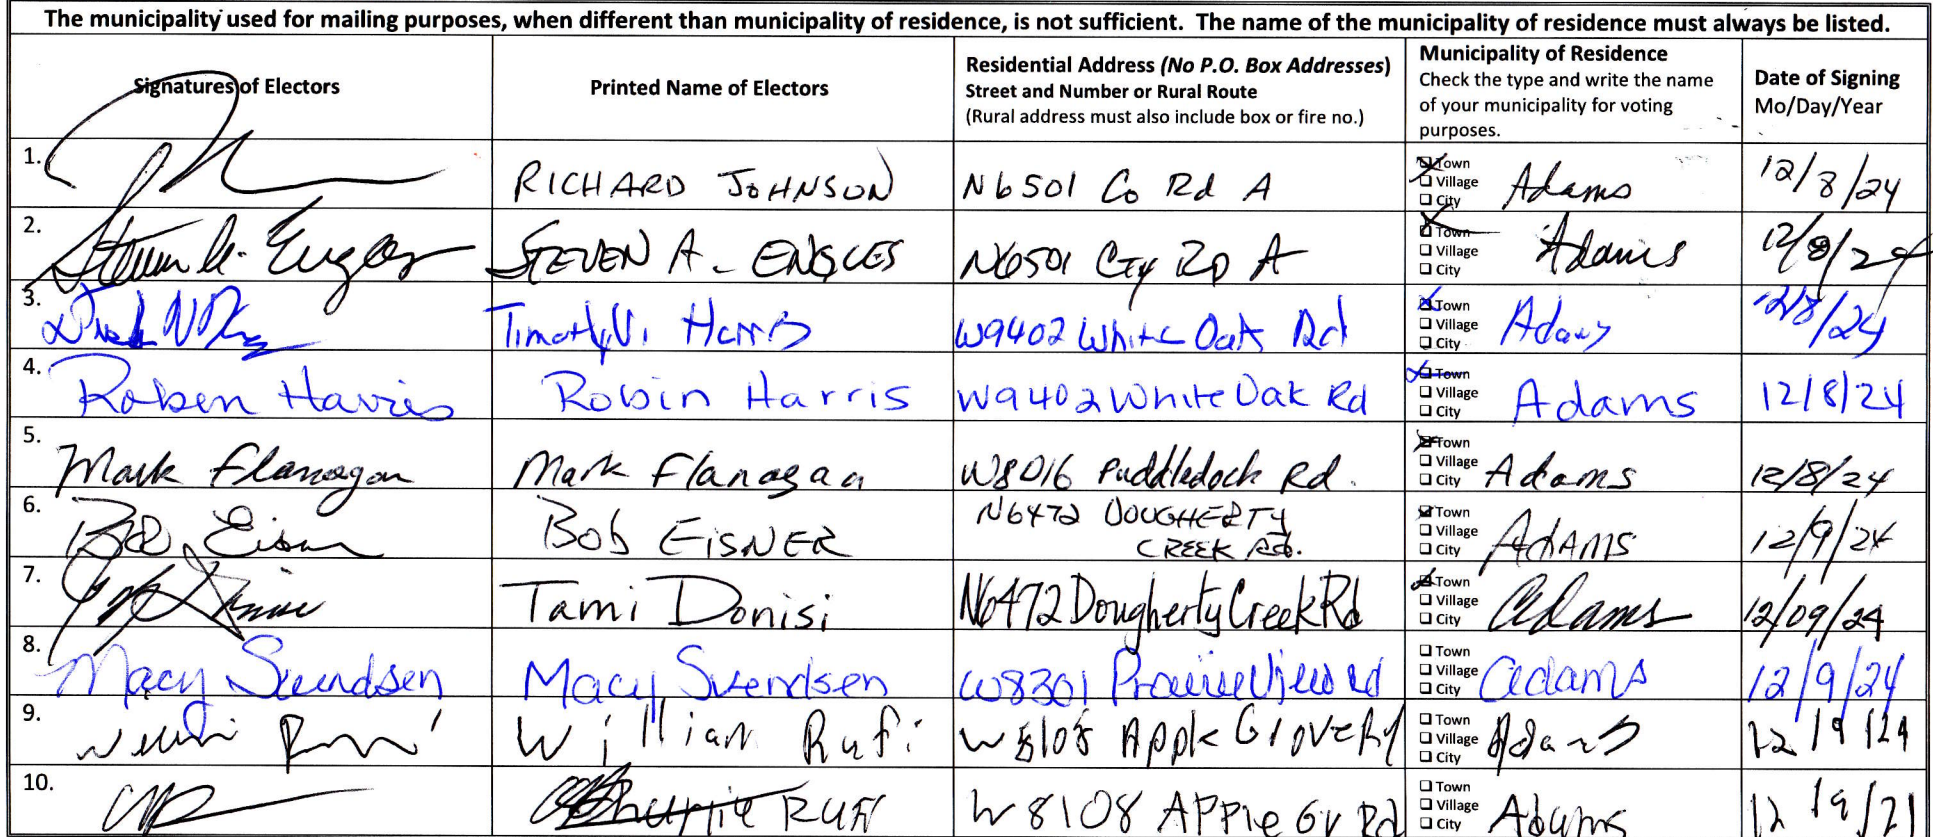 The municipality used for mailing purposes, when different than municipality of residence, is not sufficient. The name of the municipality of residence must always be listed.
Signatures of Electors
Printed Name of Electors
Residential Address (No P.O. Box Addresses)
Street and Number or Rural Route
(Rural address must also include box or fire no.)
Municipality of Residence
Check the type and write the name
of your municipality for voting
purposes.
Date of Signing
Mo/Day/Year
1.
RICHARD JOHNSON
N6501 Co Rd A
Town
Village
City
Adams
12/8/24
2.
Steven A. Engles
STEVEN A. ENGLES
N6501 CTY RD A
Town
Village
City
Adams
12/8/24
3.
Timothy N. Harris
W9402 White Oak Rd
Town
Village
City
Adams
12/8/24
4.
Roben Harris
Robin Harris
W9402 White Oak Rd
Town
Village
City
Adams
12/8/24
5.
Mark Flanagan
Mark Flanagan
W8016 Puddledock Rd.
Town
Village
City
Adams
12/8/24
6.
Bob Eisner
Bob EISNER
N6472 DOUGHERTY
CREEK RD.
Town
Village
City
AdAMS
12/9/24
7.
Tami Donisi
N6472 Dougherty Creek Rd
Town
Village
City
Adams
12/09/24
8.
Macy Svendsen
Macy Svendsen
W8301 Prairie View Rd
Town
Village
City
adams
12/9/24
9.
William Rufi
W8108 Apple Grove Rd
Town
Village
City
Adams
12/9/24
10.
RUFI
W8108 APPle Gv Rd
Town
Village
City
Adams